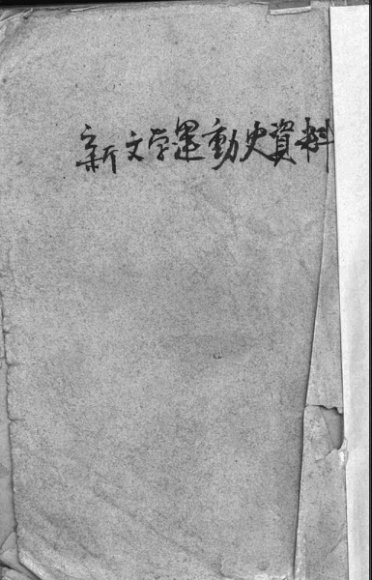 新文学運動史資料